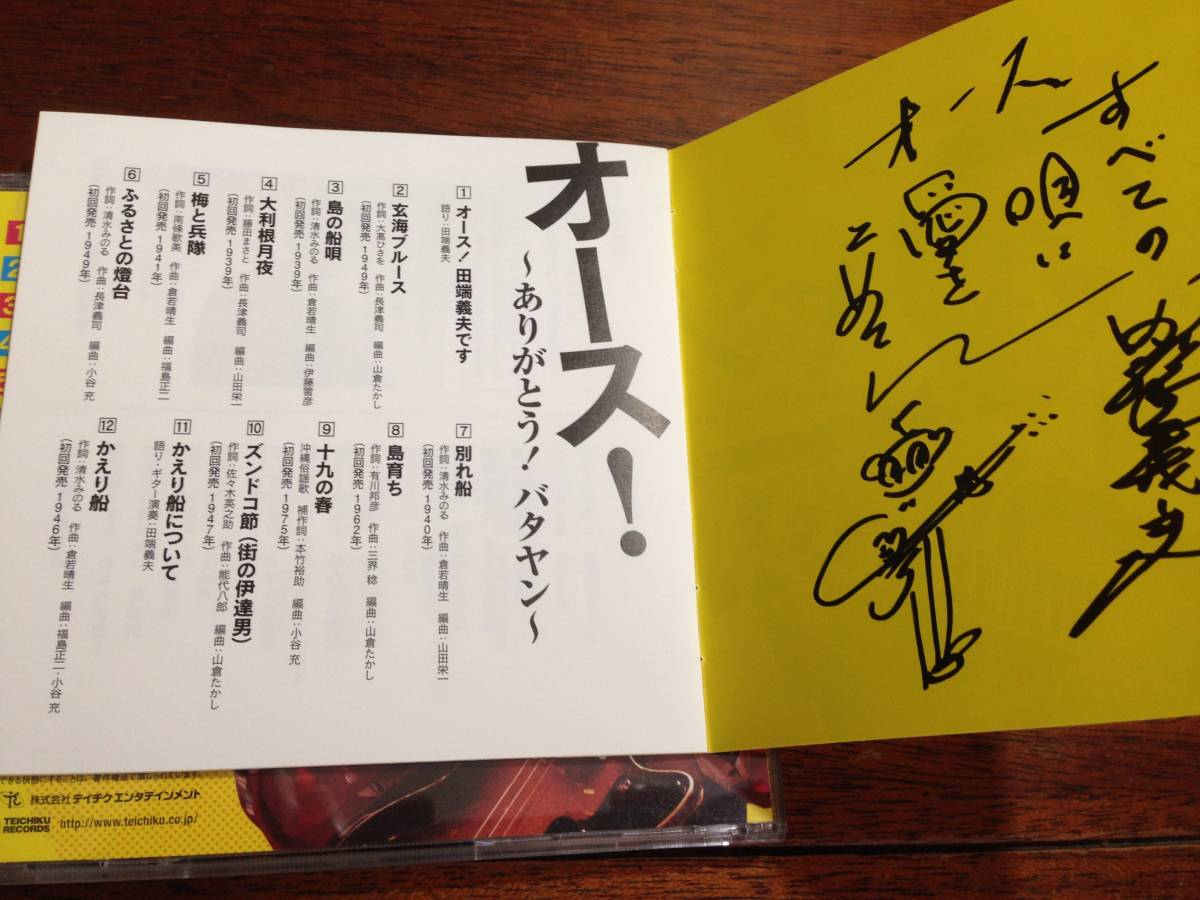 すべての
唄に
愛を
こめて
オース
田端義夫
オース!
~ありがとう!バタヤン~
1 オース!田端義夫です
語り:田端義夫
2 玄海ブルース
作詞:大高ひさを 作曲:長津義司 編曲:山倉たかし
(初回発売 1949年)
3 島の船唄
作詞:清水みのる 作曲:倉若晴生 編曲:伊藤雪彦
(初回発売 1939年)
4 大利根月夜
作詞:藤田まさと 作曲:長津義司 編曲:山田栄一
(初回発売 1939年)
5 梅と兵隊
作詞:南條歌美 作曲:倉若晴生 編曲:福島正二
(初回発売 1941年)
6 ふるさとの燈台
作詞:清水みのる 作曲:長津義司 編曲:小谷 充
(初回発売 1949年)
7 別れ船
作詞:清水みのる 作曲:倉若晴生 編曲:山田栄一
(初回発売 1940年)
8 島育ち
作詞:有川邦彦 作曲:三界 稔 編曲:山倉たかし
(初回発売 1962年)
9 十九の春
沖縄俗謡歌 補作詞:本竹裕助 編曲:小谷 充
(初回発売 1975年)
10 ズンドコ節(街の伊達男)
作詞:佐々木英之助 作曲:能代八郎 編曲:山倉たかし
(初回発売 1947年)
11 かえり船について
語り・ギター演奏:田端義夫
12 かえり船
作詞:清水みのる 作曲:倉若晴生 編曲:福島正二・小谷 充
(初回発売 1946年)
1
2
3
4
株式会社テイチクエンタテインメント
TEICHIKU RECORDS http://www.teichiku.co.jp/